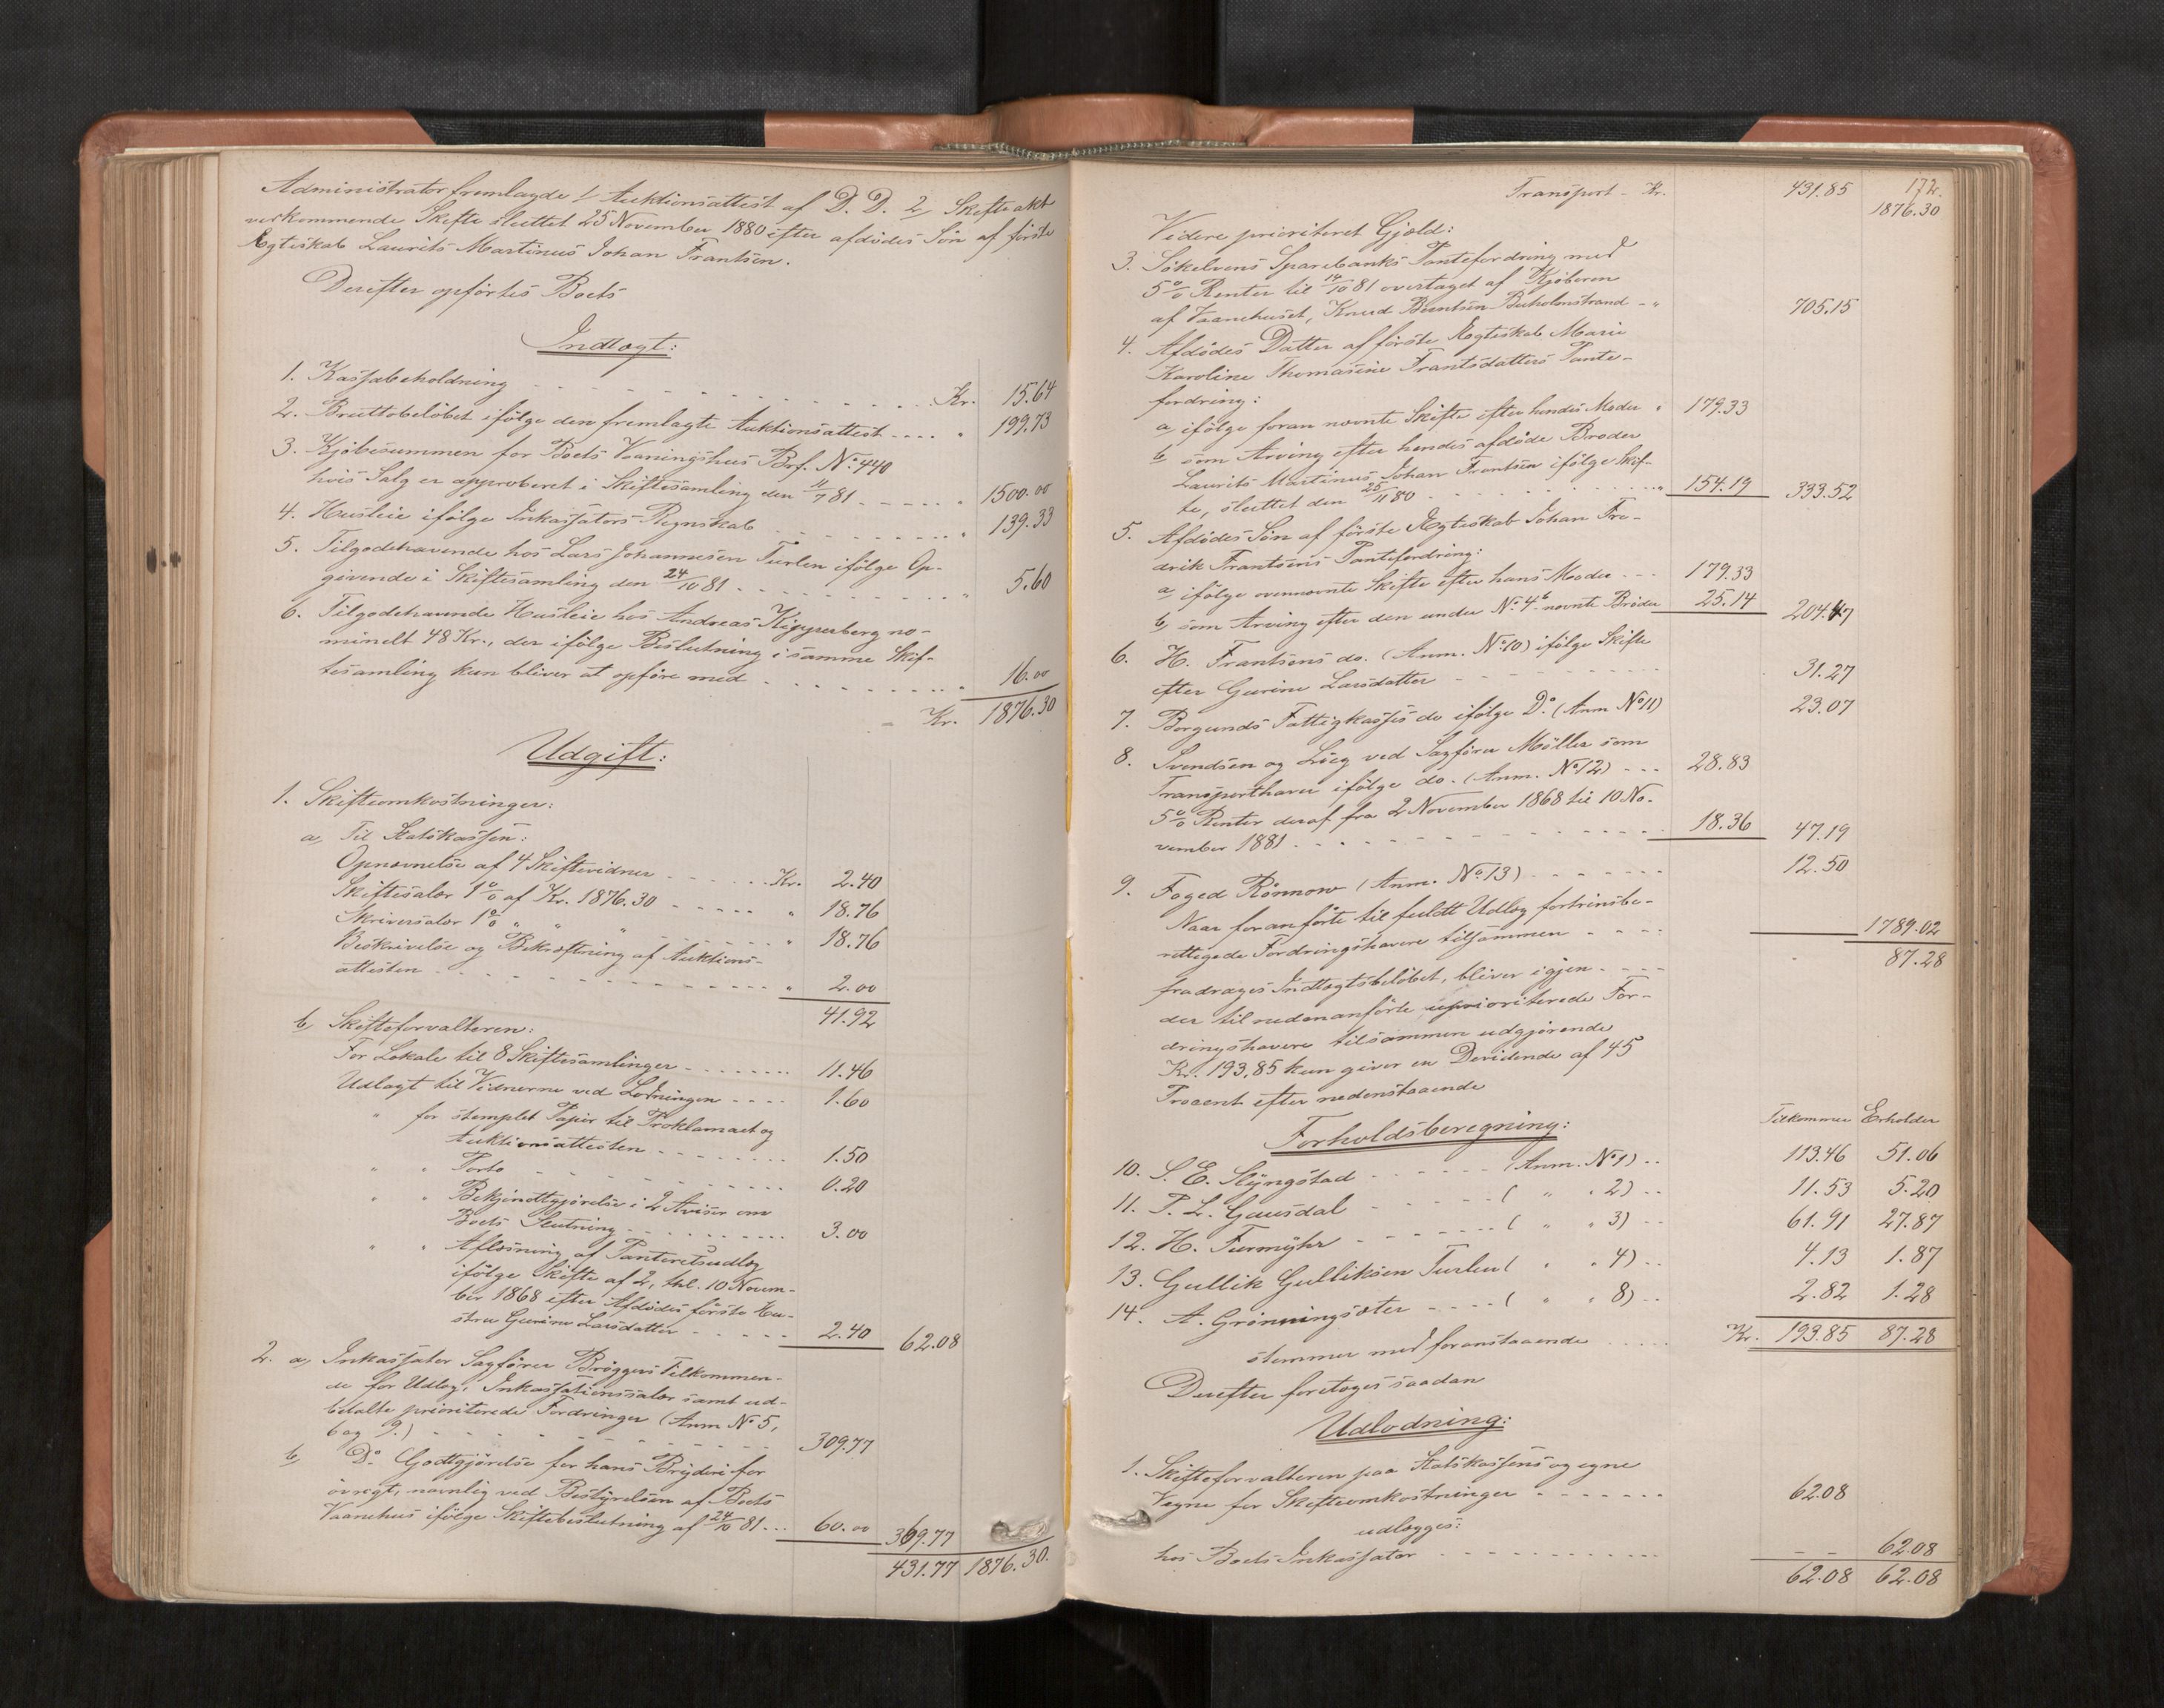 Administrator fremlagde 1, Auktionsattest af D. D. 2, Skifteakt
vedkommende Skifte sluttet 25 November 1880 efter afdødes Søn af første
Ægteskab Laurits Martinus Johan Frantsen.
Derefter opførtes Boets
Indtægt:
1. Kassabeholdning Kr. 15.64
2. Bruttobeløbet ifølge den fremlagte Auktionsattest " 199.73
3. Kjøbesummen for Boets Vaaningshus Brf. No. 440
hvis Salg er approberet i Skiftesamling den 11/7 81 " 1500.00
4. Husleie ifølge Inkassators Regnskab " 139.33
5. Tilgodehavende hos Lars Johannesen Turlen ifølge Op-
givende i Skiftesamling den 24/10 81 " 5.60
6. Tilgodehavende Husleie hos Andreas Kipperberg no-
minelt 48 Kr., der ifølge Beslutning i samme Skif-
tesamling kun bliver at opføre med " 16.00
Kr. 1876.30
Udgift:
1. Skifteomkostninger:
a, Til Statskassen:
Opnævnelse af 4 Skiftevidner Kr. 2.40
Skiftesalær 1 % af Kr. 1876.30 " 18.76
Skriversalær 1 % " " " " 18.76
Beskrivelse og Bekræftning af Auktions-
attesten " 2.00
41.92
b, Skifteforvalteren:
For Lokale til 8 Skiftesamlinger 11.46
Udlagt til Vidnerne ved Lodningen 1.60
" for stemplet Papir til Proklamaet og
Auktionsattesten 1.50
" " Porto 0.20
" " Bekjendtgjørelse i 2 Aviser om
Boets Slutning 3.00
" " Aflæsning af Panteretsudlæg
ifølge Skifte af 2, thl. 10 Novem-
ber 1868 efter Afdødes første Hu-
stru Gurine Larsdatter 2.40 62.08
2. a, Inkassator Sagfører Brøggers Tilkommen-
de for Udlæg, Inkassationssalær samt ud-
betalte prioriterede Fordringer (Anm No 5,
6 og 9.) 309.77
b, Do. Godtgjørelse for hans Bryderi for
øvrigt, navnlig ved Bestyrelsen af Boets
Vaanehus ifølge Skiftebeslutning af 24/10 81 60.00 369.77
431.77 1876.30.
172.
Transport - Kr. 431.85 1876.30
Videre prioriteret Gjæld:
3. Søkelvens Sparebanks Pantefordring med
5 % Renter til 14/10 81 overtaget af Kjøberen
af Vaanehuset, Knud Berntsen Buholmstrand - " 705.15
4. Afdødes Datter af første Ægteskab Marie
Karoline Thomasine Frantsdatters Pante-
fordring:
a, ifølge foran nævnte Skifte efter hendes Moder " 179.33
b, som Arving efter hendes afdøde Broder
Laurits Martinus Johan Frantsen ifølge Skif-
te, sluttet den 25/11 80 " 154.19 333.52
5. Afdødes Søn af første Ægteskab Johan Fre-
drik Frantsens Pantefordring:
a, ifølge ovennævnte Skifte efter hans Moder 179.33
b, som Arving efter den under No. 4 b nævnte Broder 25.14 204.47
6. H. Frantsens do. (Anm. No 10) ifølge Skifte
efter Gurine Larsdatter 31.27
7. Borgunds Fattigkasses do ifølge Do. (Anm No 11) 23.07
8. Svendsen og Lieg ved Sagfører Møller som
Transporthaver ifølge do. (Anm. No 12) 28.83
5 % Renter deraf fra 2 November 1868 til 10 No-
vember 1881 18.36 47.19
9. Foged Rönnow (Anm. No 13) 12.50
Naar foranførte til fuldt Udlæg fortrinsbe-
rettigede Fordringshavere tilsammen 1789.02
fradrages Indtægtsbeløbet, bliver igjen 87.28
der til nedenanførte uprioriterede For-
dringshavere tilsammen udgjørende
Kr. 193,85 kun giver en Dividende af 45
Procent efter nedenstaaende
Forholdsberegning: Tilkommer Erholder
10. S. E. Slyngstad (Anm. No 1) 113.46 51.06
11. P. L. Gausdal ( " " 2) 11.53 5.20
12. H. Furmyhr ( " " 3) 61.91 27.87
13. Gullik Gulliksen Turlen ( " " 4) 4.13 1.87
14. A. Grønningsæter ( " " 8) 2.82 1.28
stemmer med foranstaaende Kr. 193.85 87.28
Derefter foretoges saadan
Udlodning:
1. Skifteforvalteren paa Statskassens og egne
Vegne for Skifteomkostninger 62.08
udlægges:
hos Boets Inkassator 62.08
62.08 62.08